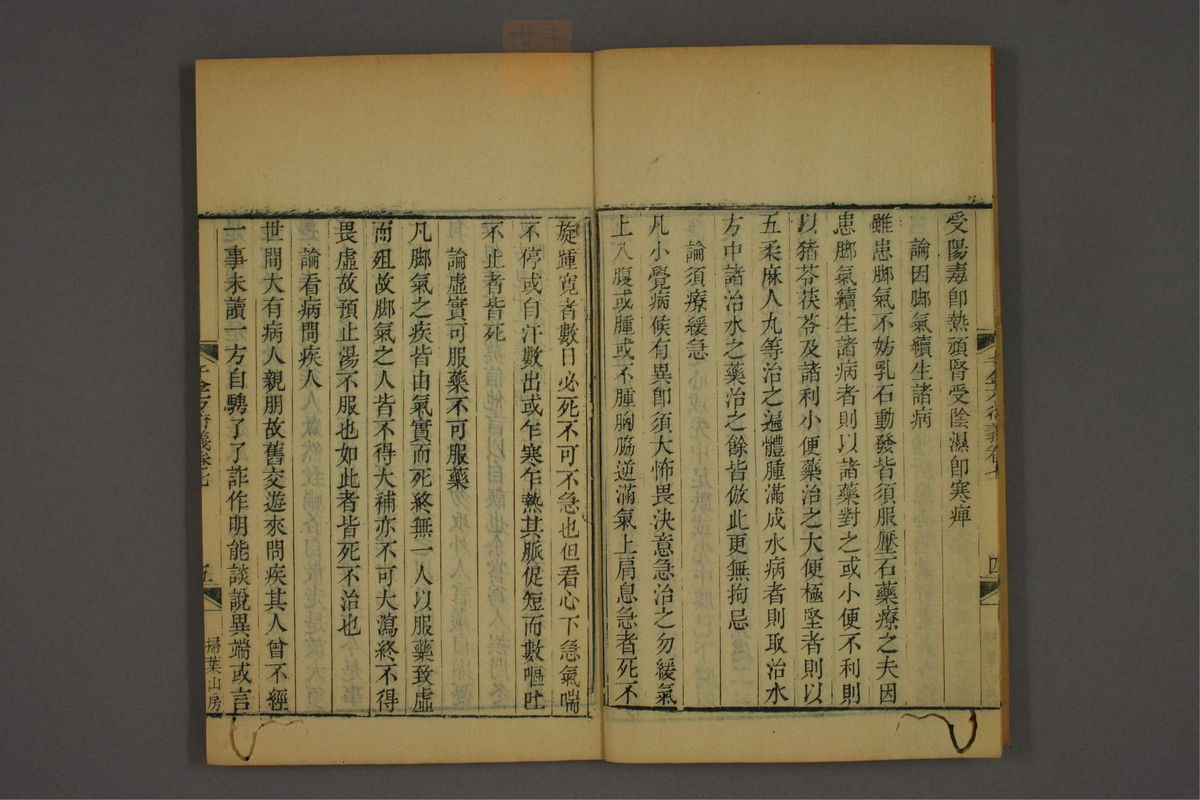 受陽毒卽熱頑腎受陰濕卽寒痺
論因脚氣續生諸病
雖患脚氣不妨乳石動發皆須服壓石藥療之夫因
患脚氣續生諸病者則以諸藥對之或小便不利則
以猪苓茯苓及諸利小便藥治之大便極堅者則以
五柔麻人丸等治之遍體腫滿成水病者則取治水
方中諸治水之藥治之餘皆倣此更無拘忌
論須療緩急
凡小覺病候有異卽須大怖畏決意急治之勿緩氣
上入腹或腫或不腫胸脇逆滿氣上肩息急者死不
旋踵寬者數日必死不可不急也但看心下急氣喘
不停或自汗數出或乍寒乍熱其脈促短而數嘔吐
不止者皆死
論虛實可服藥不可服藥
凡脚氣之疾皆由氣實而死終無一人以服藥致虛
而殂故脚氣之人皆不得大補亦不可大瀉終不得
畏虛故預止湯不服也如此者皆死不治也
論看病問疾人
世間大有病人親朋故舊交遊來問疾其人曾不經
一事未讀一方自騁了了詐作明能談說異端或言
千金方衍義卷七
五
掃葉山房
四